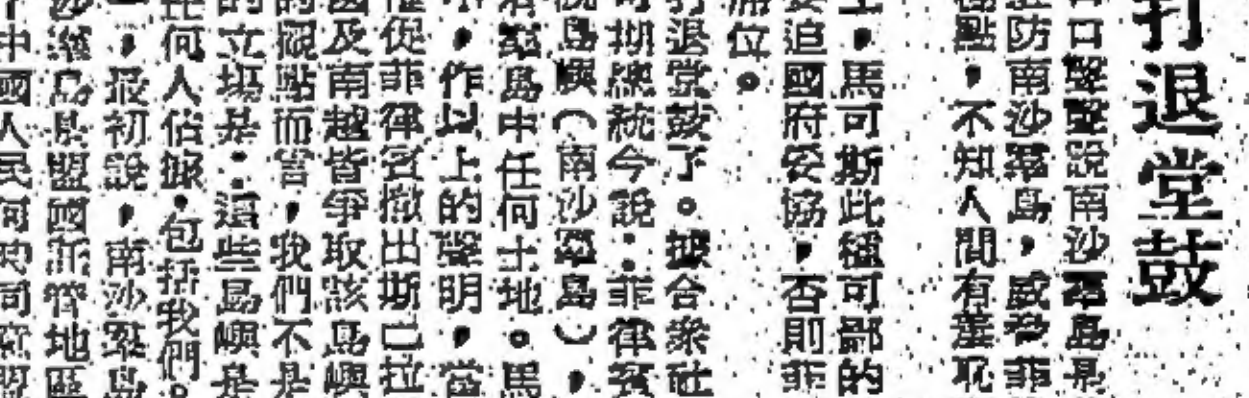 打退堂鼓
口口聲聲說南沙羣島是
防南沙羣島,威脅菲
點,不知人間有羞恥
,馬可斯此種可鄙的
迫國府妥協,否則菲
位。
打退堂鼓了。據合衆社
可斯總統今說:菲律賓
島嶼(南沙羣島),
羣島中任何土地。馬
,作以上的聲明,當
促菲律賓撤出斯巴拉
及南越皆爭取該島嶼
的觀點而言,我們不是
的立場是:這些島嶼是
任何人佔據,包括我們。
,最初說,南沙羣島
沙羣島是盟國所管地區
中國人民何時同意盟